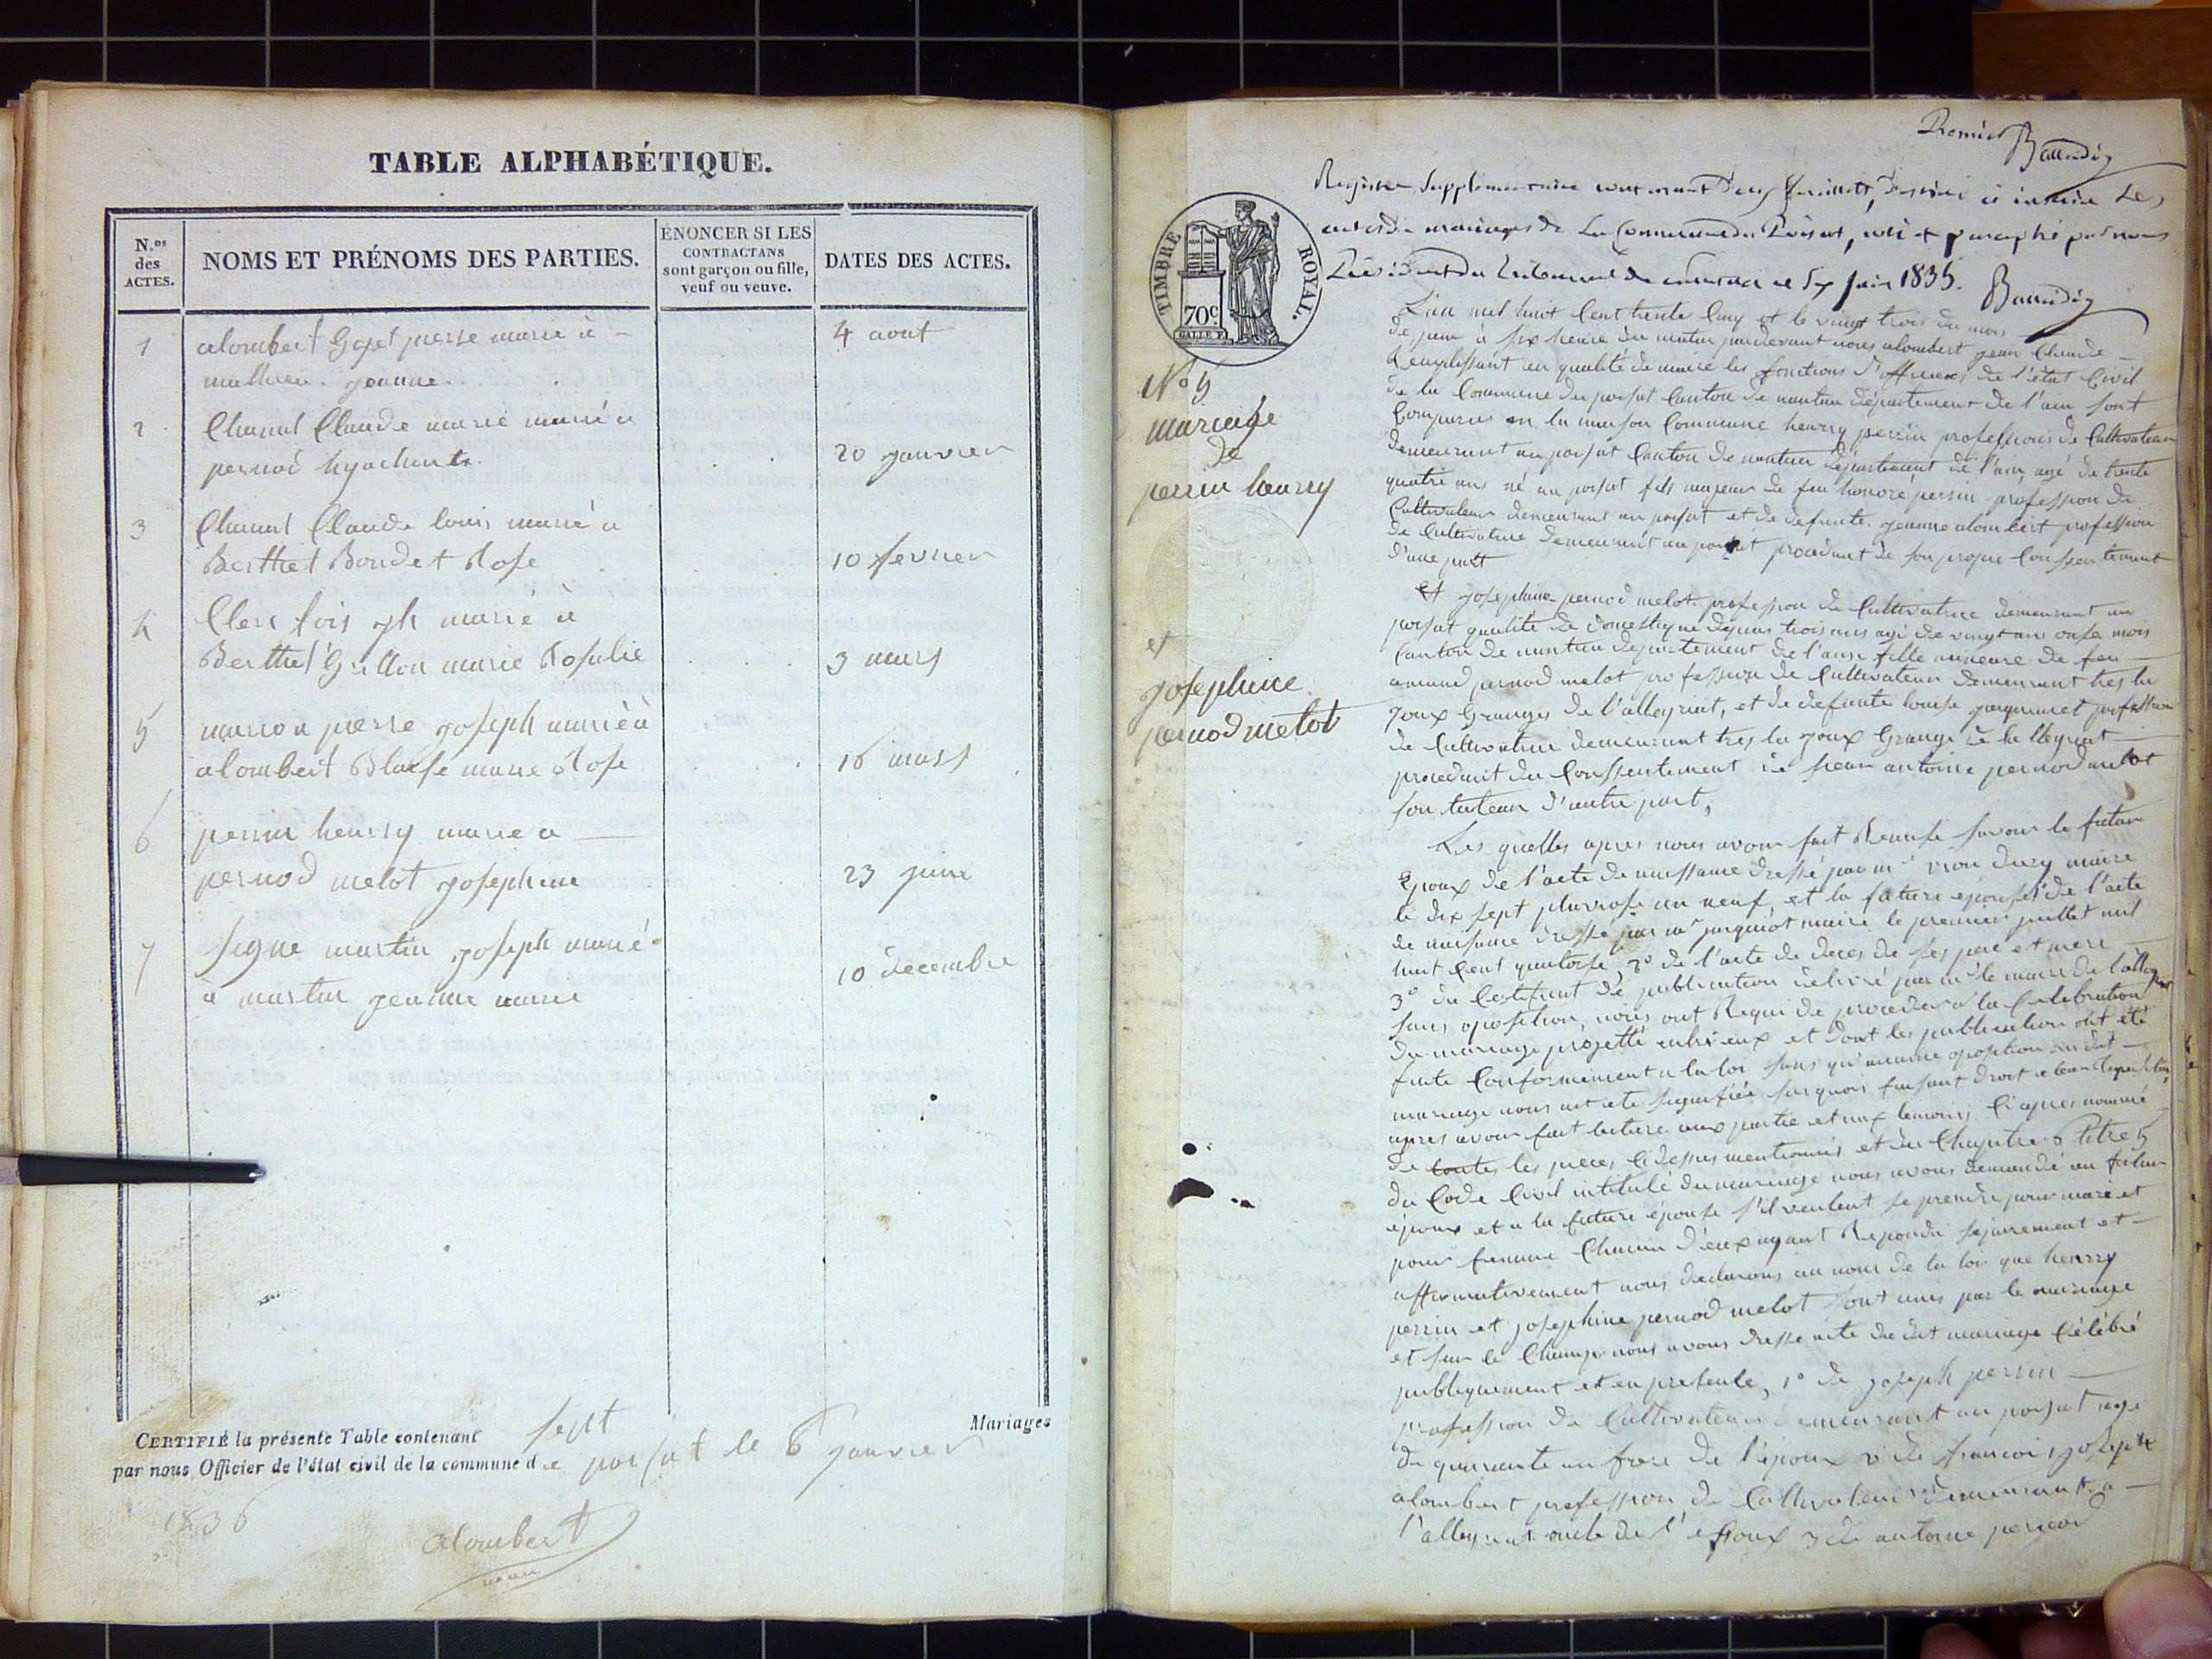 TABLE ALPHABÉTIQUE.
N.os des ACTES.
NOMS ET PRÉNOMS DES PARTIES.
ÉNONCER SI LES CONTRACTANS sont garçon ou fille, veuf ou veuve.
DATES DES ACTES.
1 alombert Gojet pierre marie à
mathieu jeanne
4 aout
2 Chanal Claude marie marié a
pernod hyachinte
20 janvier
3 Chanal Claude louis marié a
Berthet Bondet Rose
10 fevrier
4 Clerc fois jh marié à
Berthet Grillon marie Rosalie
3 mars
5 pierre joseph marié à
alombert Blaise marie Rose
16 mars
6 perrin henrry marie a
pernod melot josephine
23 juin
7 segne martin joseph marié
à martin jeanne marie
10 decembre
CERTIFIÉ la présente Table contenant sept Mariages
par nous Officier de l'état civil de la commune de poisat le 6 janvier
1836
alombert
maire
Premier
Registre Supplémentaire contenant deux feuillets, destiné à inscrire Les
actes de mariages de La Commune du Poisat, coté et paraphé par nous
Président du tribunal de nantua le six juin 1835.
TIMBRE ROYAL.
70c
N° 5
mariage
de
perrin henrry
et
josephine
pernod melot
L'an mil huit Cent trente Cinq et le vingt trois du mois
de juin à six heure du matin pardevant nous alombert jean Claude
Remplissant en qualité de maire les fonctions d'officiers de l'état Civil
de la Commune du poisat Canton de nantua département de l'ain sont
Comparus en la maison Commune henrry perrin profession de Cultivateur
demeurant au poisat Canton de nantua département de l'ain, agé de trente
quatre ans né au poisat fils majeur de feu honoré perrin profession de
Cultivateur demeurant au poisat et de defunte jeanne alombert profession
de Cultivatrice demeurant au poisat procedant de son propre Conssentement
d'une part
Et josephine pernod melot profession de Cultivatrice demeurant au
poisat qualité de domestique depuis trois ans agé de vingt ans onse mois
Canton de nantua departement de l'ain fille mineure de feu
amand pernod melot profession de Cultivateur demeurant tres la
joux Granges de l'alleyriat, et de defunte louise profession
de Cultivatrice demeurant tres la joux Grange de la lleyriat
procedant du Conssentement de sieur antoine pernod melot
son tuteur d'autre part,
Les quelles apres nous avoir fait Remise savoir le futur
Epoux de l'acte de naissance dressé par mr maire
le dix sept pluviose an neuf, et la future epouse 1° de l'acte
de naissance dressé par mr maire le premier juillet mil
huit Cent quatorse, 2° de l'acte de deces de ses pere et mere
3° du Certificat de publication delivré par mr le maire de l'alleyriat
sans oposition, nous ont Requi de proceder a la Celebration
du mariage projetté entre eux et dont les publication ont été
faite Conformement a la loi sans qu'aucune oposition au dit
mariage nous ait eté signifiée sur quoi faisant droit a leur Requisition
apres avoir fait lecture aux partie et aux temoins Ci apres nommé
de toutes les pieces Cidessus mentionnés et du Chapitre 6 titre 5
du Code Civil intitulé du mariage nous avons demandé au futur
époux et a la future épouse s'il veulent se prendre pour mari et
pour femme Chacun d'eux ayant Repondu sejarement et
affirmativement nous declarons au nom de la loi que henrry
perrin et josephine pernod melot sont unis par le mariage
et sur le Champ nous avons dressé acte du dit mariage Célébré
publiquement et en presente, 1° de joseph perrin
profession de Cultivateur demeurant au poisat age
de quarante un frere de l'époux 2 de francois joseph
alombert profession de Cultivateur demeurant a
l'alleyriat oncle de l'epoux 3 de antoine pernod